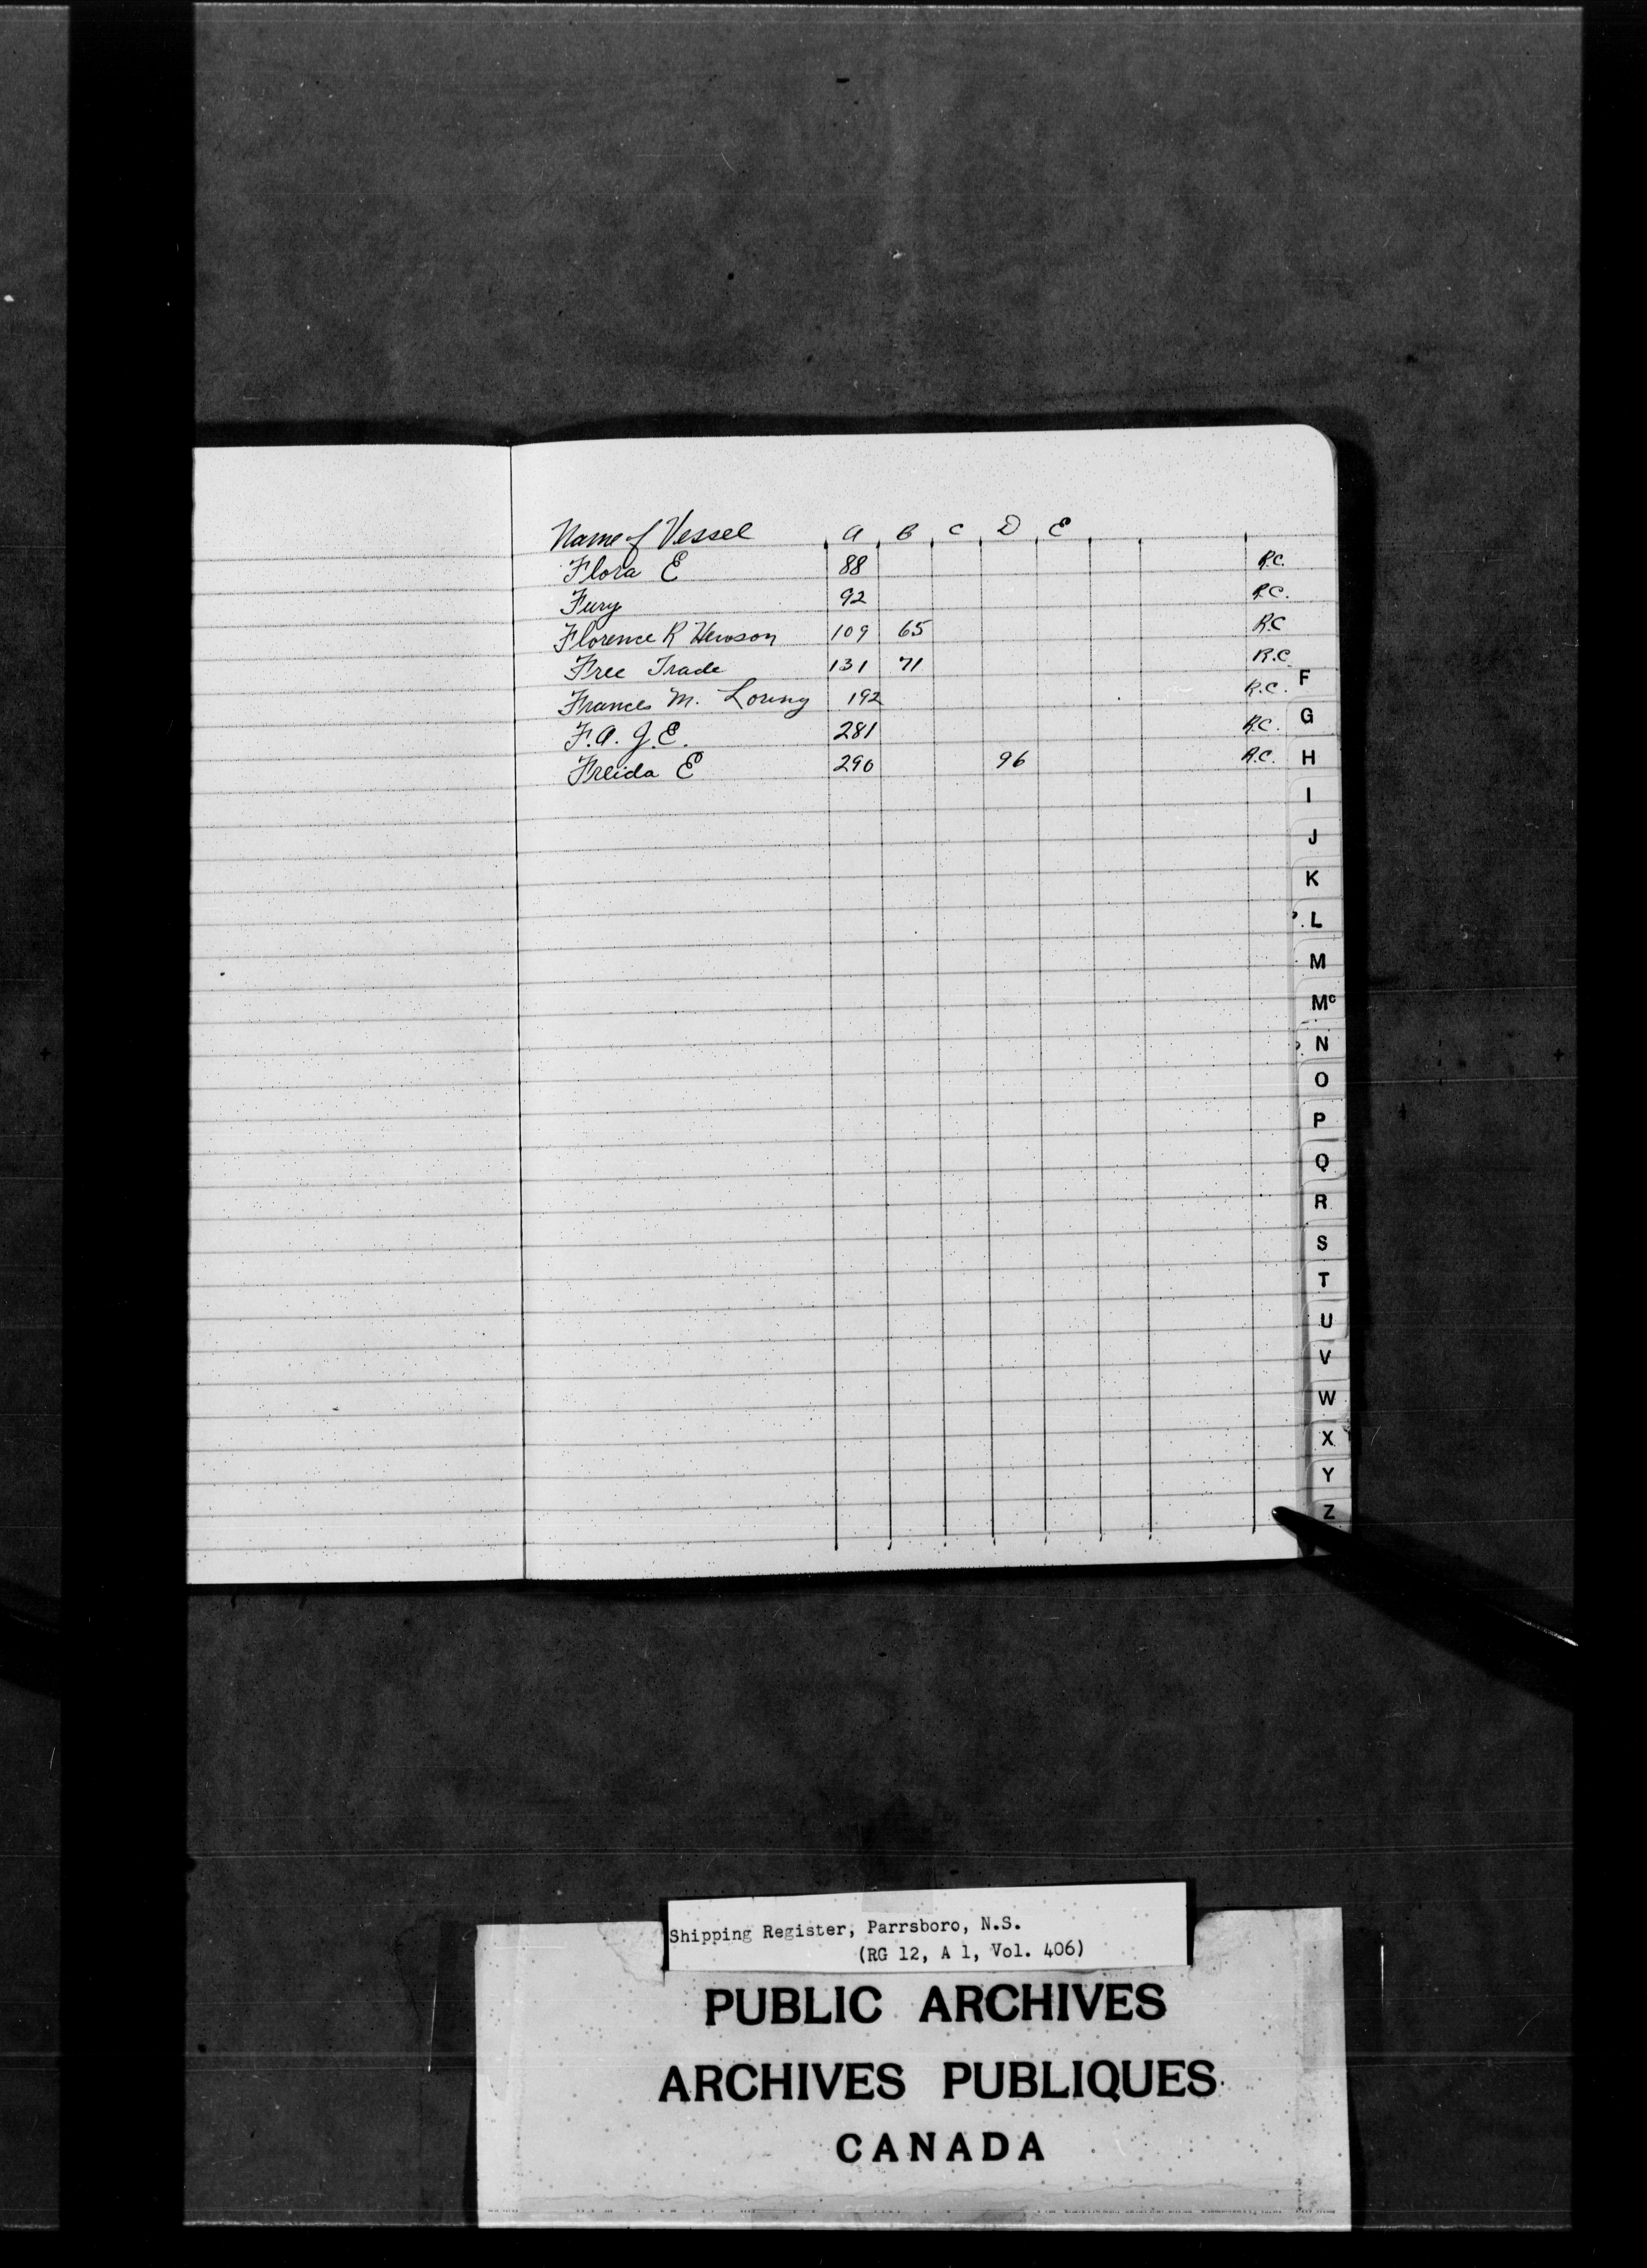 Name of Vessel A B C D E
Flora E 88 R.C.
Fury 92 R.C.
Florence R Hewson 109 65 R.C
Free Trade 131 71 R.C.
Frances M. Loring 192 R.C.
F.A. G.E. 281 R.C.
Freida E 290 96 R.C.
F
G
H
I
J
K
L
M
Mc
N
O
P
Q
R
S
T
U
V
W
X
Y
Z
Shipping Register, Parrsboro, N.S.
(RG 12, A 1, Vol. 406)
PUBLIC ARCHIVES
ARCHIVES PUBLIQUES
CANADA